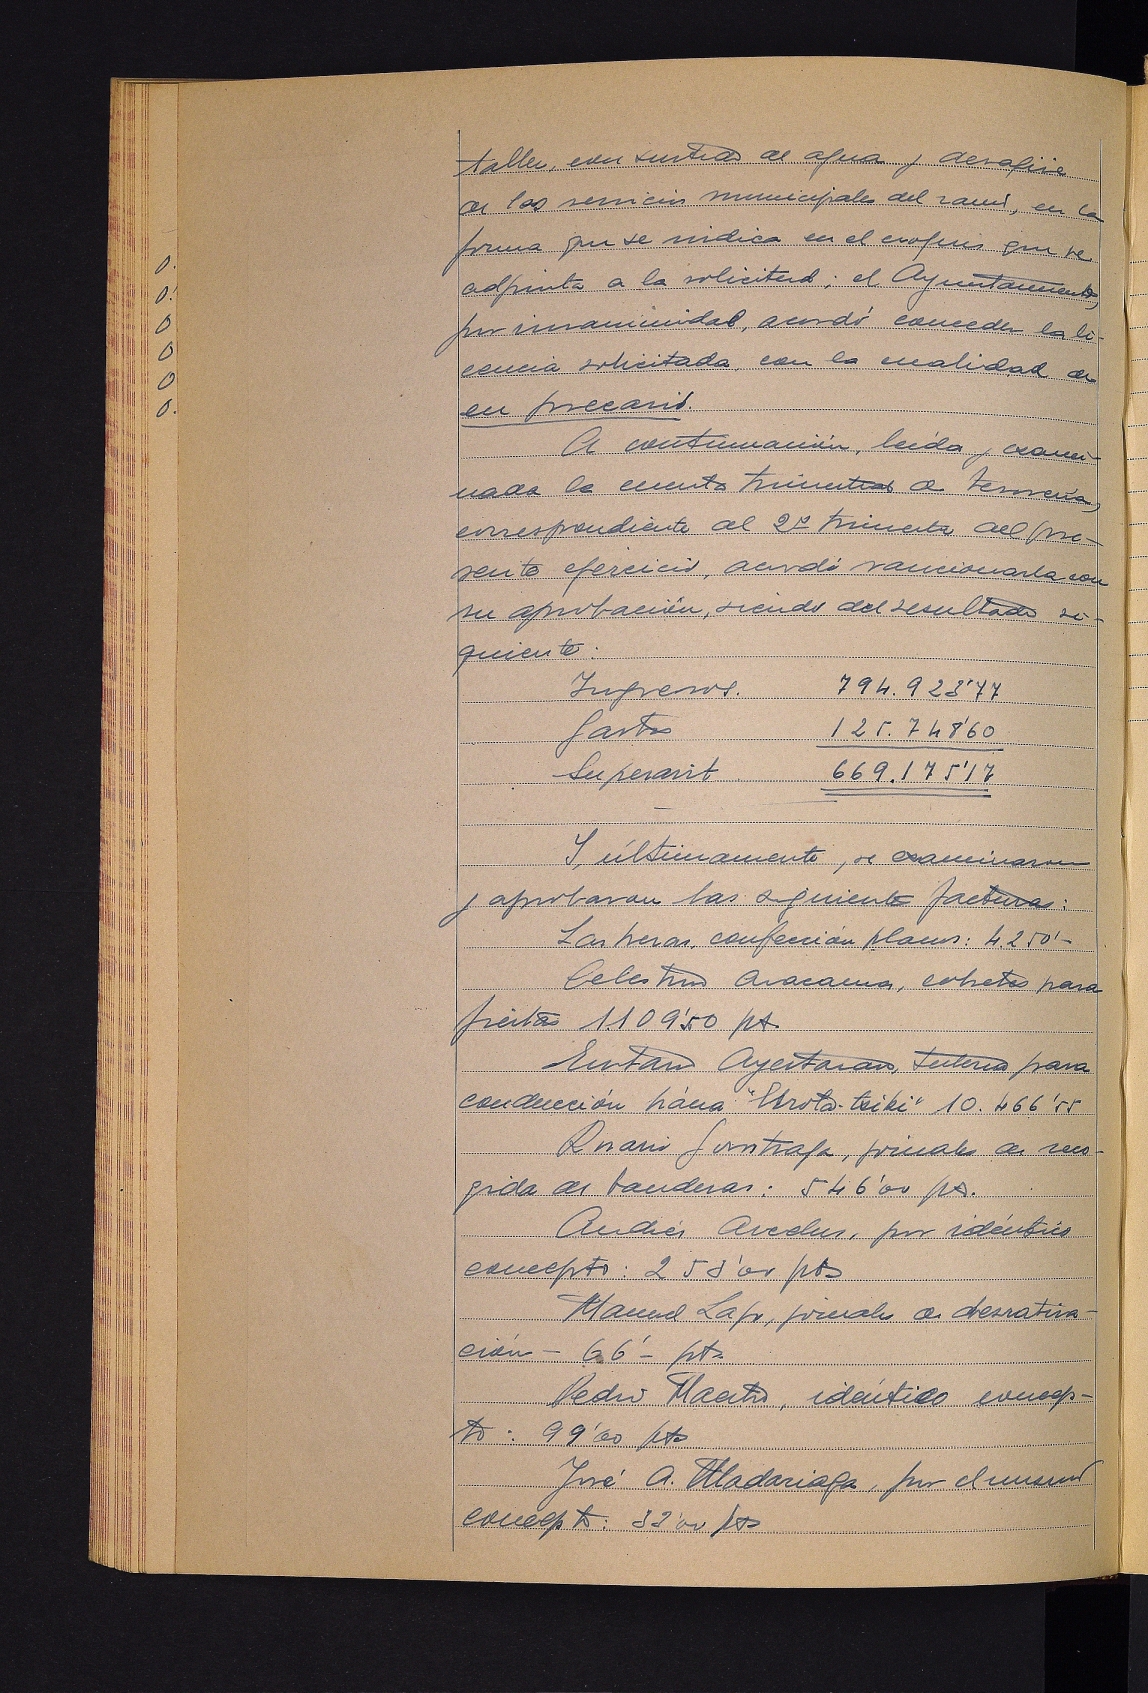 taller, con surtido de agua y desagüe
de los servicios municipales del ramo, en la
forma que se indica en el croquis que se
adjunta a la solicitud; el Ayuntamiento,
por unanimidad, acordó conceder la li-
cencia solicitada con la cualidad de
en precario.
A continuación, leída y exami-
nada la cuenta trimestral de tesorería,
correspondiente al 2º trimestre del pre-
sente ejercicio, acordó sancionarla con
su aprobación, siendo del resultado si-
guiente:
Ingresos. 794.923'77
Gastos 125.748'60
Superavit 669.175'17
Y últimamente, se examinaron
y aprobaron las siguientes facturas:
confección planos: 4.250'-
Celestino Aracama, cohetes para
fiestas 1109'50 pts
Ayestaran, tuberia para
conducción hácia "Errota-txiki" 10.466'55
Rosario, jornales de reco-
gida de banderas: 546'00 pts.
Andrés, por idéntico
concepto: 253'00 pts
Manuel, jornales de desratiza-
ción - 66'- pts
Pedro Maeztu, idéntico concep-
to: 99'00 pts
José A. Madariaga, por el mismo
concepto: 33'00 pts